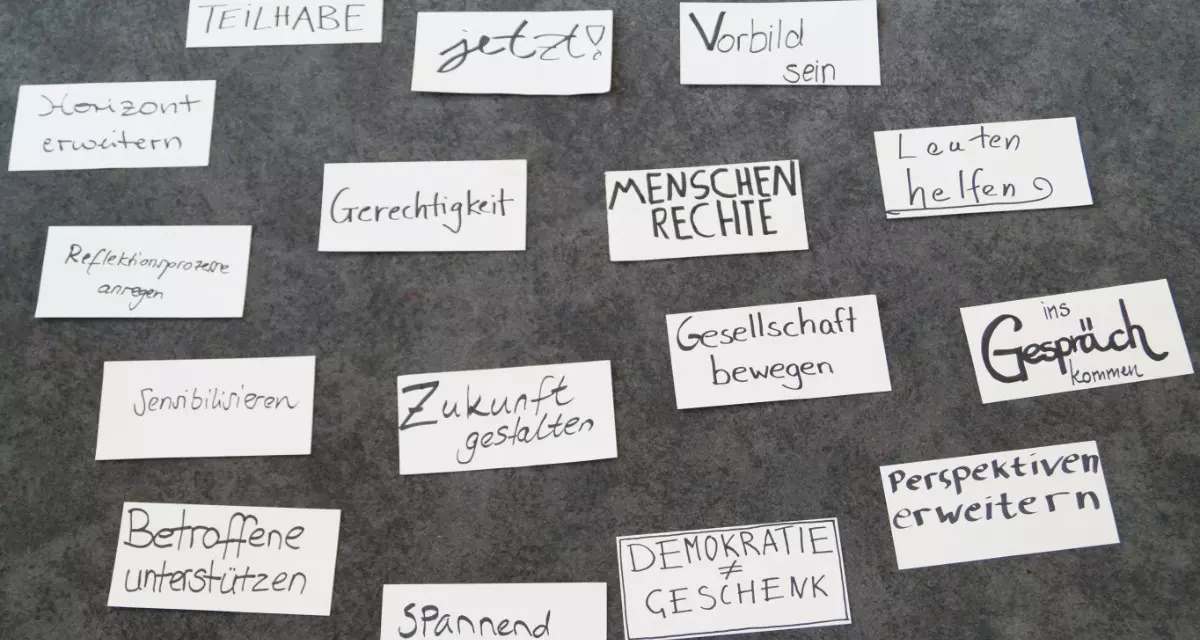 TEILHABE
jetzt!
Vorbild
sein
Horizont
erweitern
Gerechtigkeit
MENSCHEN
RECHTE
Leuten
helfen
Reflektionsprozesse
anregen
Gesellschaft
bewegen
ins
Gespräch
kommen
Sensibilisieren
Zukunft
gestalten
Perspektiven
erweitern
Betroffene
unterstützen
spannend
DEMOKRATIE
≠
GESCHENK